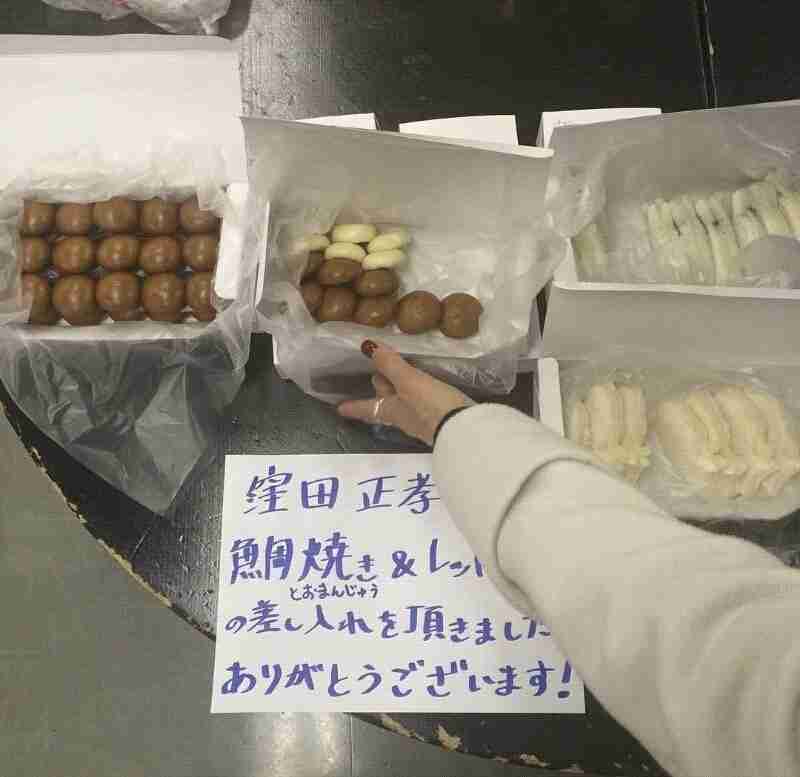 窪田 正孝
鯛焼き & レッ
とおまんじゅう
の差し入れを頂きました
ありがとうございます!